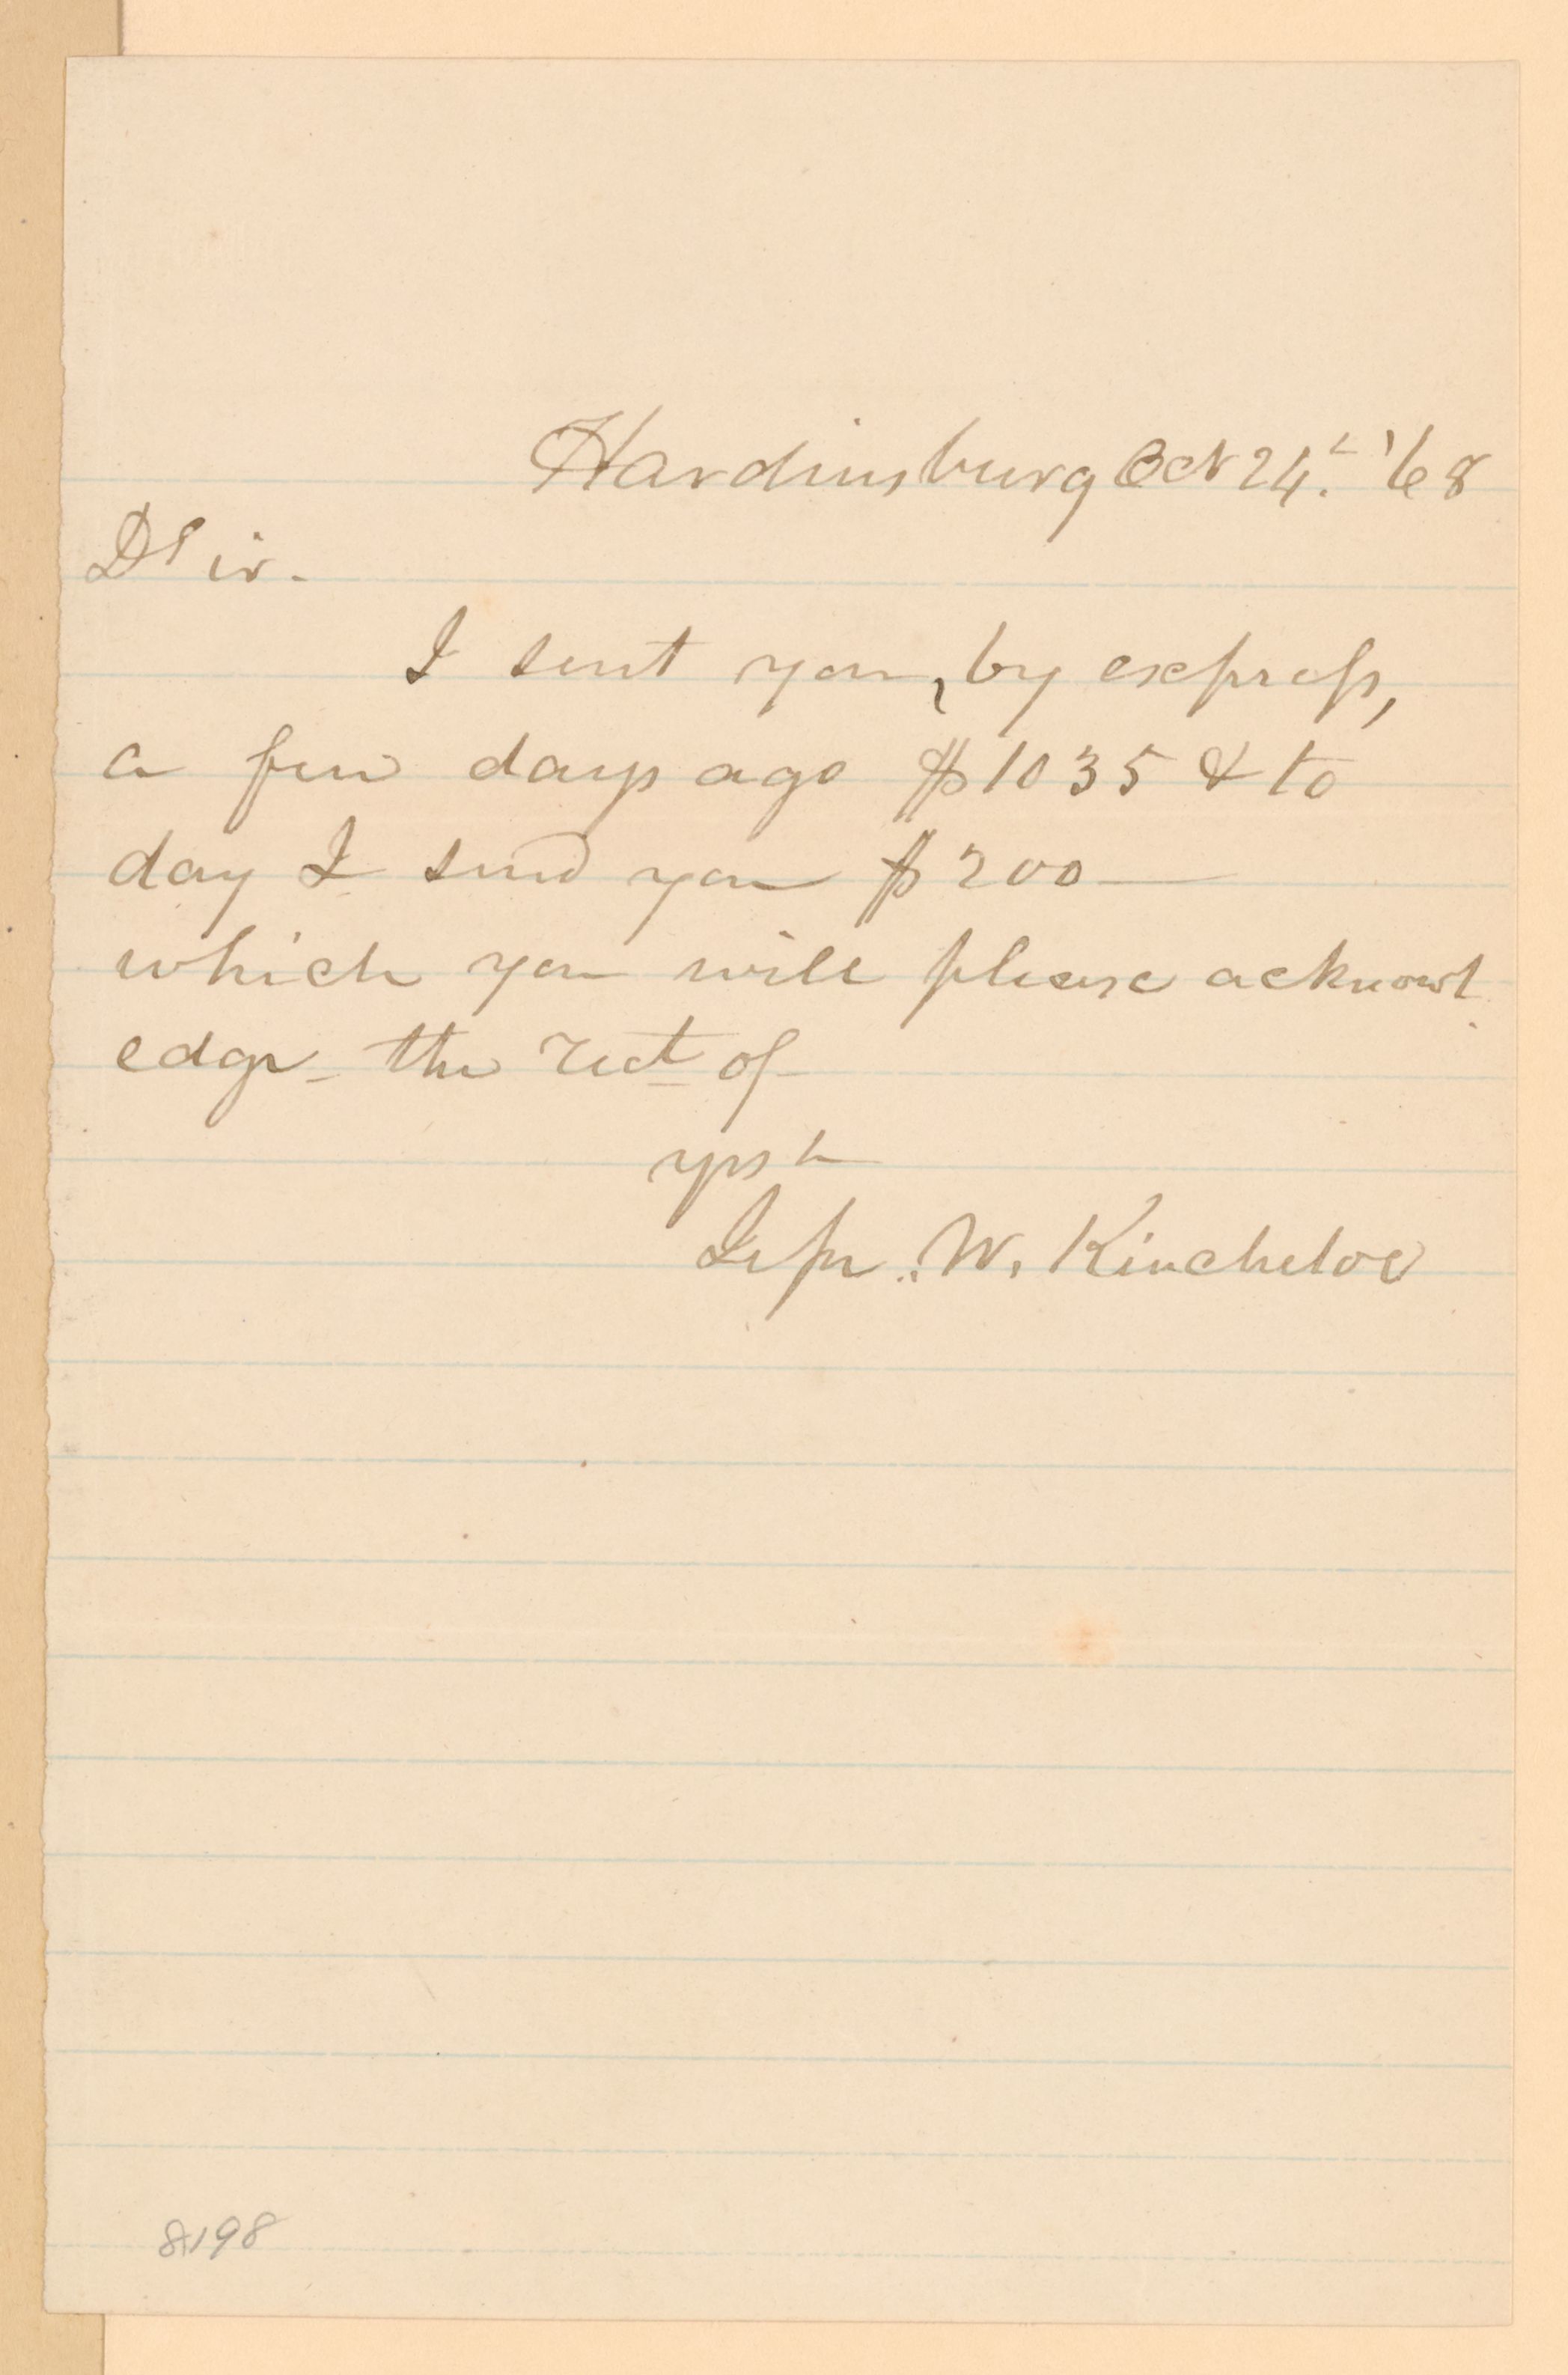 Hardinsburg Oct 24. '68
D Sir.
I sent you, by express,
a few days ago $1035 & to
day I send you $200
which you will please acknowl
edge the rect of
yrs &c
Jesse W. Kincheloe
8198